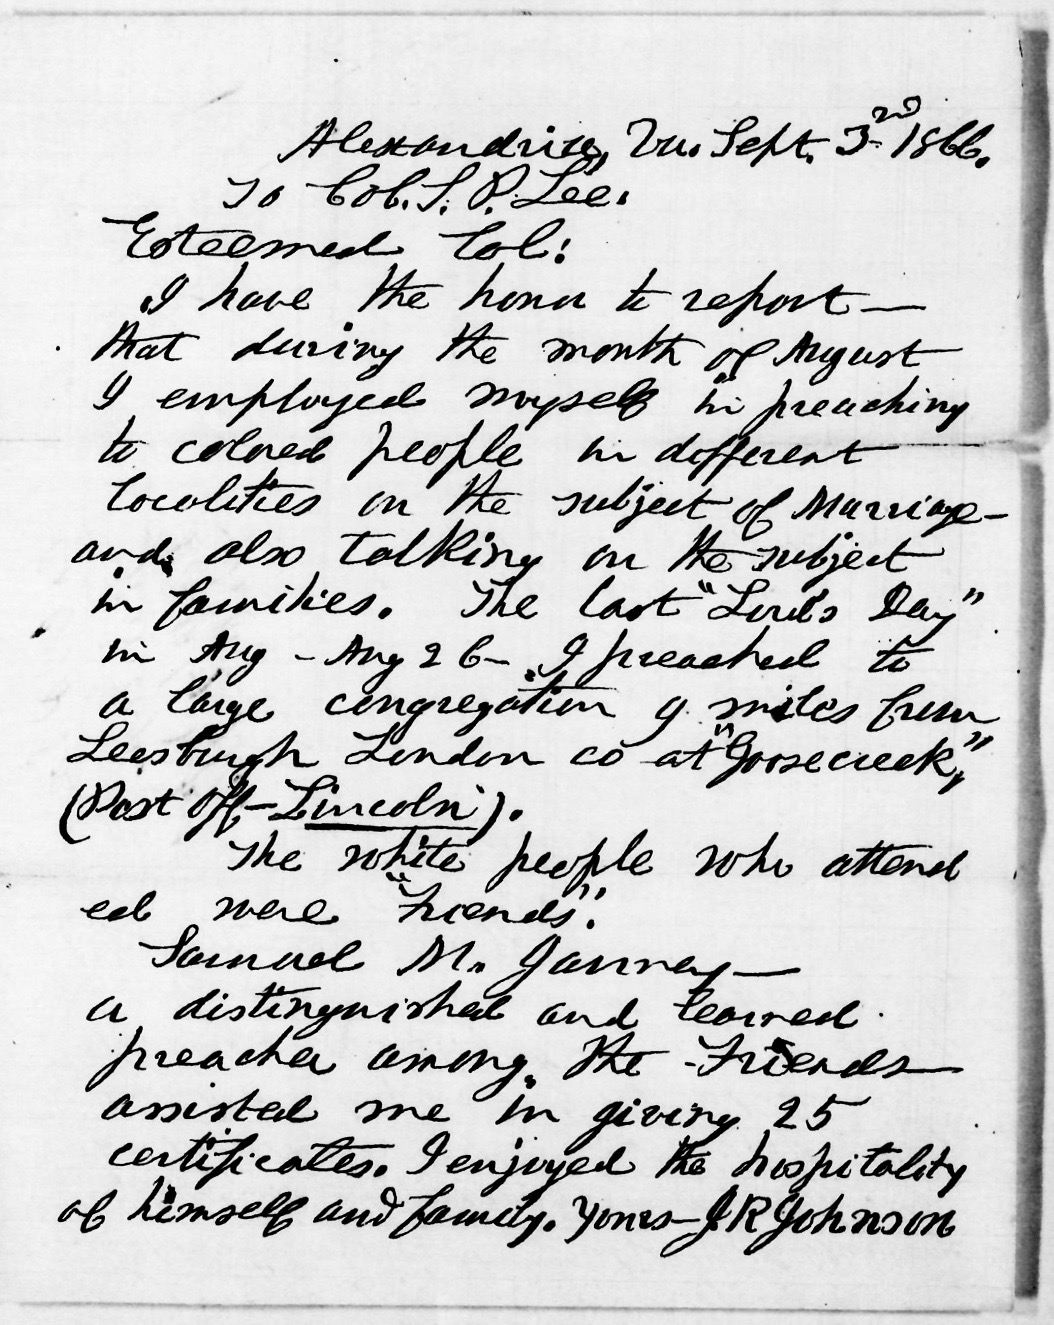 Alexandria, Va. Sept. 3nd 1866.
To Col. S. P. Lee.
Esteemed Col:
I have the honor to report—
that during the month of August
I employed myself in preaching
to colored people in different
localities on the subject of Marriage—
and also talking on the subject
in families. The last "Lord's Day"
in Aug - Aug 26 - I preached to
a large congregation 9 miles from
Leesburgh Loudon co at "Goosecreek",
(Post off - Lincoln).
The white people who attend
ed were "Friends".
Samuel M. Janney—
a distinguished and learned
preacher among the Friends—
assisted me in giving 25
certificates. I enjoyed the hospitality
of himself and family. Yours—J R Johnson